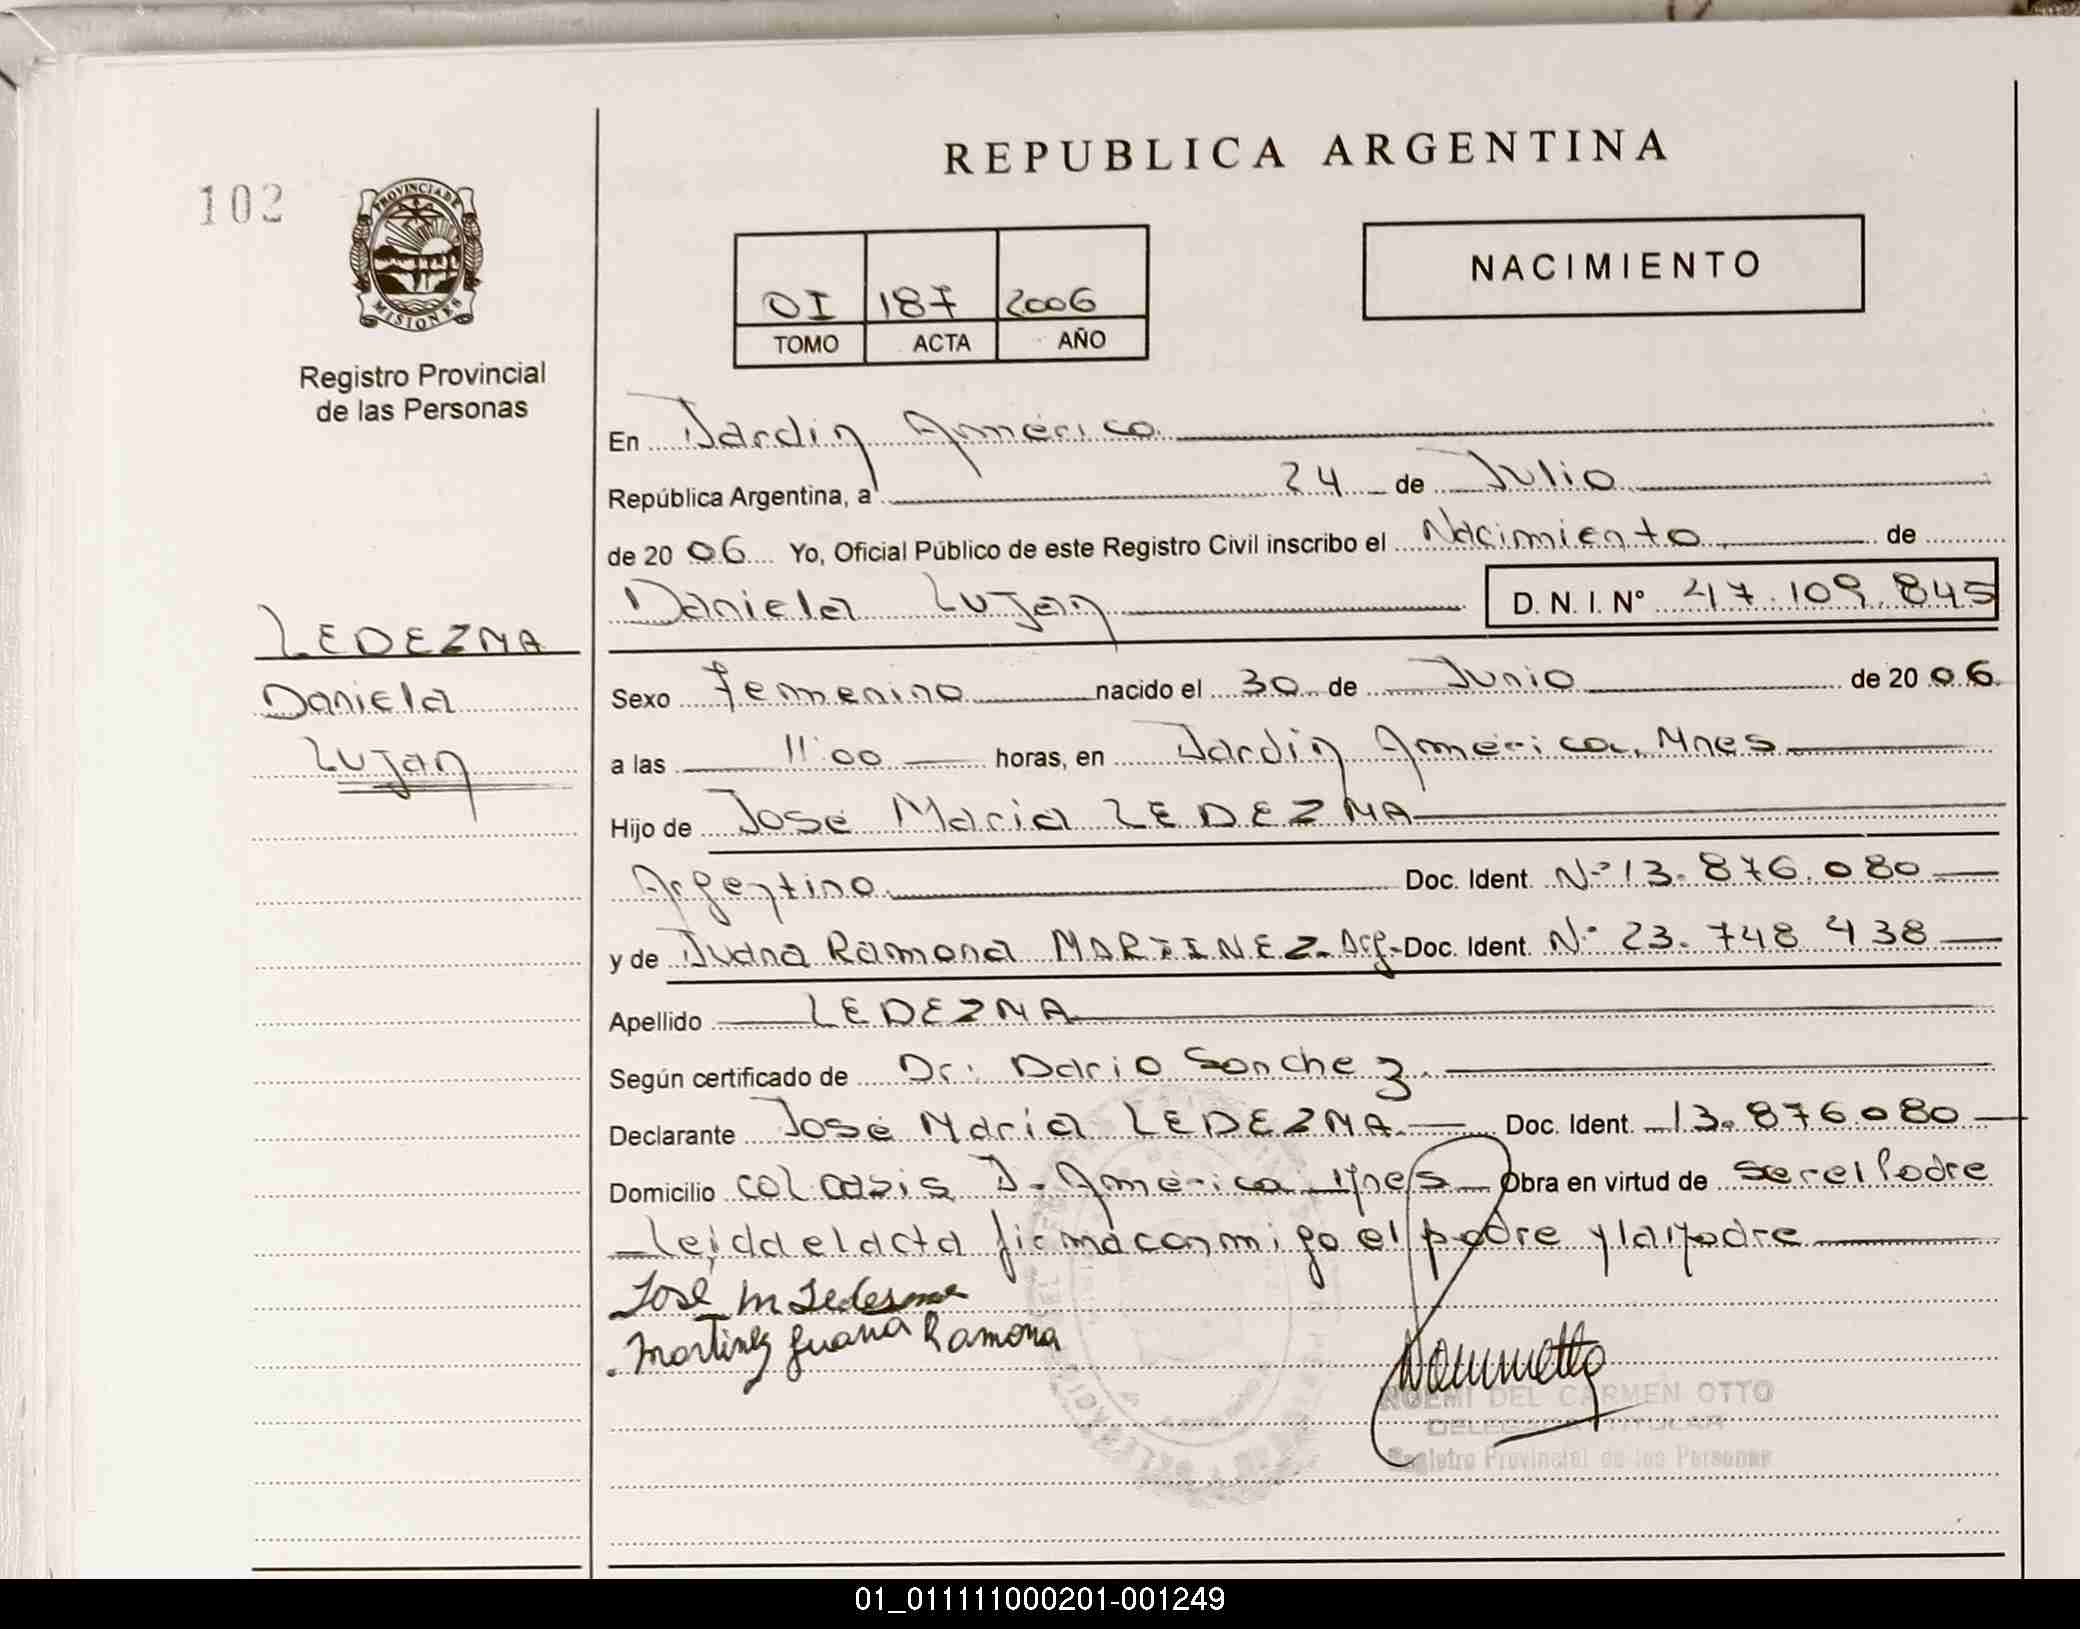 REPUBLICA ARGENTINA
102
PROVINCIA DE
MISIONES
Registro Provincial
de las Personas
NACIMIENTO
01 187 2006
TOMO ACTA AÑO
En Jardin América
República Argentina, a 24 de Julio
de 2006 Yo, Oficial Público de este Registro Civil inscribo el Nacimiento de
Daniela Lujan D. N. I. Nº 47.109.845
LEDEZMA
Daniela
Lujan
Sexo Femenino nacido el 30 de Junio de 2006
a las 11:00 horas, en Jardin América, Mnes
Hijo de José Maria LEDEZMA
Argentino Doc. Ident. Nº 13.876.080
y de Juana Ramona MARTINEZ - Arg - Doc. Ident. Nº 23.748 438
Apellido LEDEZMA
Según certificado de Dr. Dario Sanchez
Declarante José Maria LEDEZMA Doc. Ident. 13.876.080
Domicilio Col oasis J. América Mnes Obra en virtud de ser el Padre
Leida el acta firma conmigo el padre y la Madre
José M Ledesma
Martinez Juana Ramona
NOEMI DEL CARMEN OTTO
DELEGADA TITULAR
Registro Provincial de las Personas
01_011111000201-001249